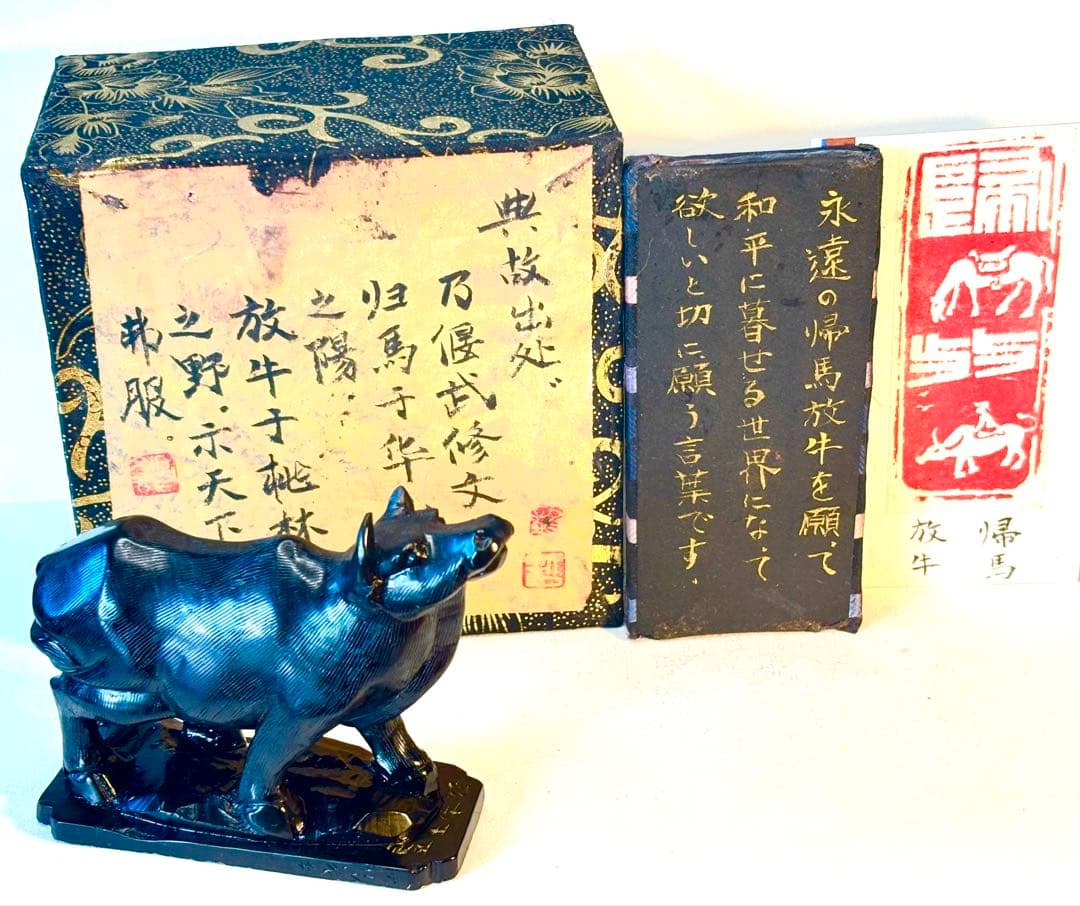 典故出处
乃偃武修文
归馬于华
之陽.
放牛于桃林
之野.示天下
弗服。
永遠の帰馬放牛を願って
和平に暮せる世界になって
欲しいと切に願う言葉です.
歸
放
帰馬
放牛